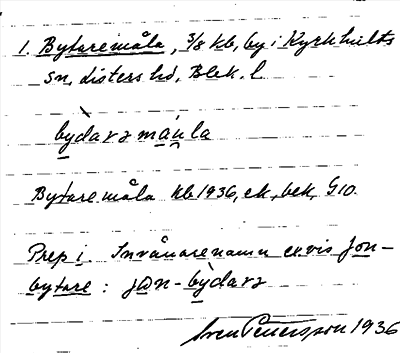 1. Bytaremåla, 3/8 kb, by i Kyrkhults
sn, Listers hd, Blek. l.
bydarə máula
Bytaremåla kb 1936, ek, bek, G10.
Prep i. Invånarenamn envis Jon-
bytare : jɷn-bỳdarə
Sven Petersson 1936